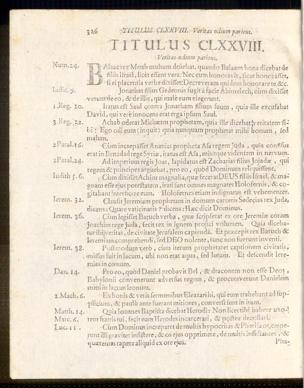 326 TITULUS CLXXVIII. Veritas odium pariens.
TITULUS CLXXVIII.
Veritas odium pariens.
Num. 24. Balaac Rex Moab multum dolebat, quando Balaam bona dicebat de
filiis Israel, licet essent vera. Nec eum honoravit, sicut
si ei placentia verba dixisset: Decreveram quidem honorare te &c.
Iudic. 9. Jonathan filius Gedeonis fugit à facie Abimelech, dum dixisset
veritatem eo, & de illis, qui male eum elegerunt.
1. Reg. 20. Iratus est Saul contra Jonathan filium suum, quia ille excusabat
David, qui verè innocens erat erga ipsum Saul.
3. Reg. 22. Achab oderat Michæam prophetam, quia ille dicebat veritatem
Ego odi eum (inquit) quia nunquam prophetat mihi bonum, sed
malum.
2. Paral. 16. Cum increpasset Anania propheta Asa regem Juda, quia confisus
erat in Benadad rege Syriæ, iratus est Asa, misitque videntem in nervum.
2. Paral. 24. Ad imperium regis Joas, lapidatus est Zacharias filius Jojadæ, qui
regem & principes arguebat, pro eo, quòd Dominum reliquissent.
Judith 5. 6. Cum dixisset Achior magnalia, quæ fecerat DEUS filiis Israel,
iram omnes magnates Holofernis, & co-
gitabant interficere eum. Holofernes etiam indignatus est vehementer.
Ierem. 32. Clausit Jeremiam prophetam in domum carceris Sedecias rex Juda,
dicens: Quare vaticinaris dicens: Hæc dicit Dominus.
Ierem. 36. Cùm legisset Baruch verba, quæ scripserat ex ore Jeremiæ coram
Joachim rege Juda, iecit ea in ignem projici volumen. Quia diceba-
tur ibi veritas, de civitate Jerusalem capienda. Et præcepit ut Baruch &
Jeremiam comprehenderent, sed DEO nolente, tunc non fuerunt inventi.
Ierem. 38. prophetam capitionem civitatis,
misitur in lacum, ubi non erat aqua, sed lutum. Et descendit Jere-
mias in cœnum.
Dan. 14. Pro eo, quòd Daniel probavit Bel, & draconem non esse Deos,
Babylonii convenerunt adversus regem, & procuraverunt Danielem
mitti in lacum leonum.
2. Mach. 6. Ex bonis & veris sermonibus Eleazari, qui eum trahebant ad sup-
plicium, & paulò ante fuerant mitiores, conversi sunt in iram.
Matth. 14. Quia Joannes Baptista dicebat Herodi: Non licet tibi habere uxo-
Marc. 6. rem fratris tui, fecit eum Herodes incarcerari, & postea decollari.
Luc. 11. Cum Dominus increparet de multis hypocritas & Pharisæos, cœpe-
runt illi graviter insistere, & os ejus opprimere, de multis insidiantes &
quærentes capere aliquid ex ore ejus.